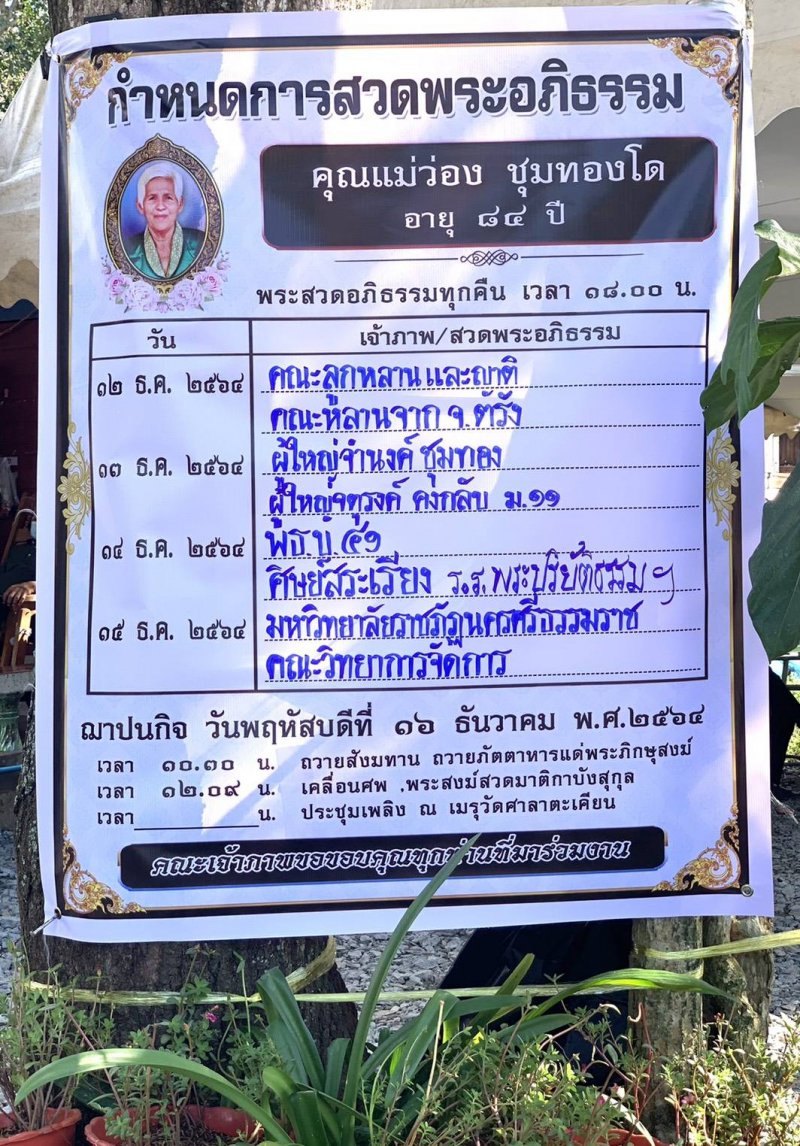 กำหนดการสวดพระอภิธรรม
คุณแม่ว่อง ชุมทองโด
อายุ ๘๔ ปี
พระสวดอภิธรรมทุกคืน เวลา ๑๘.๐๐ น.
วัน เจ้าภาพ/สวดพระอภิธรรม
๑๒ ธ.ค. ๒๕๖๔ คณะลูกหลานและญาติ
คณะหลานจาก จ.ตรัง
๑๓ ธ.ค. ๒๕๖๔ ผู้ใหญ่จำนงค์ ชุมทอง
ผู้ใหญ่จตุรงค์ คงกลับ ม.๑๑
๑๔ ธ.ค. ๒๕๖๔ พธ.บ. ๕๑
ศิษย์สระเรียง ร.ร.พระปริยัติธรรมฯ
๑๕ ธ.ค. ๒๕๖๔ มหาวิทยาลัยราชภัฏนครศรีธรรมราช
คณะวิทยาการจัดการ
ฌาปนกิจ วันพฤหัสบดีที่ ๑๖ ธันวาคม พ.ศ.๒๕๖๔
เวลา ๑๐.๓๐ น. ถวายสังฆทาน ถวายภัตตาหารแด่พระภิกษุสงฆ์
เวลา ๑๒.๐๙ น. เคลื่อนศพ ,พระสงฆ์สวดมาติกาบังสุกุล
เวลา น. ประชุมเพลิง ณ เมรุวัดศาลาตะเคียน
คณะเจ้าภาพขอขอบคุณทุกท่านที่มาร่วมงาน